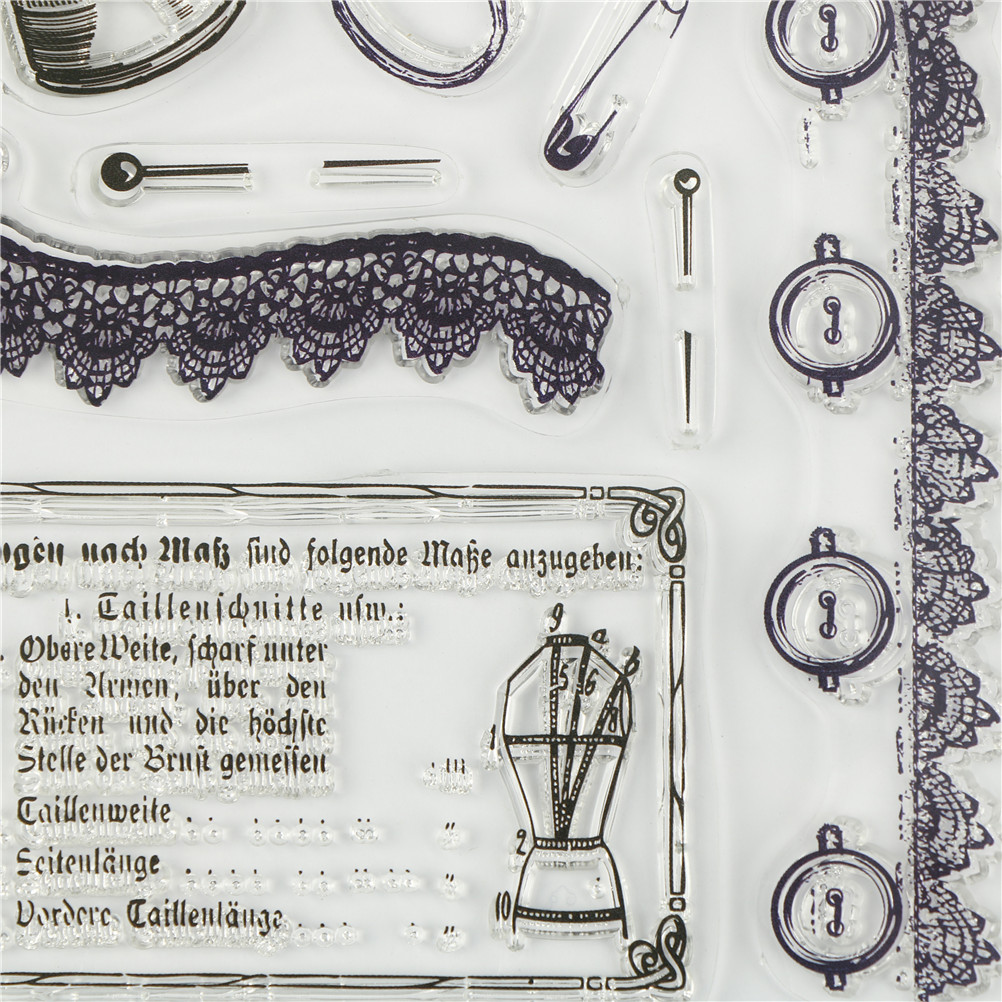 ngen nach Maß sind folgende Maße anzugeben:
1. Taillenschnitte usw.:
Obere Weite, scharf unter
den Armen, über den
Rücken und die höchste
Stelle der Brust gemessen
Taillenweite . . . . . . . . "
Seitenlänge . . . . . . . . "
Vordere Taillenlänge . . . . . "
9
a
b
5
6
8
1
2
10